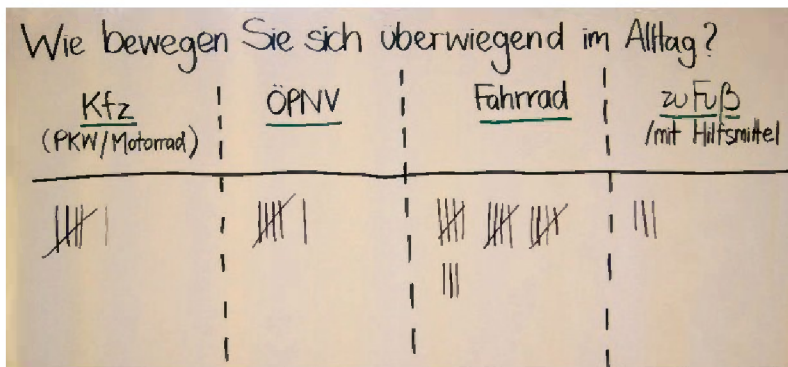 Wie bewegen Sie sich überwiegend im Alltag?
Kfz
(PKW/Motorrad)
ÖPNV
Fahrrad
zu Fuß
/mit Hilfsmittel